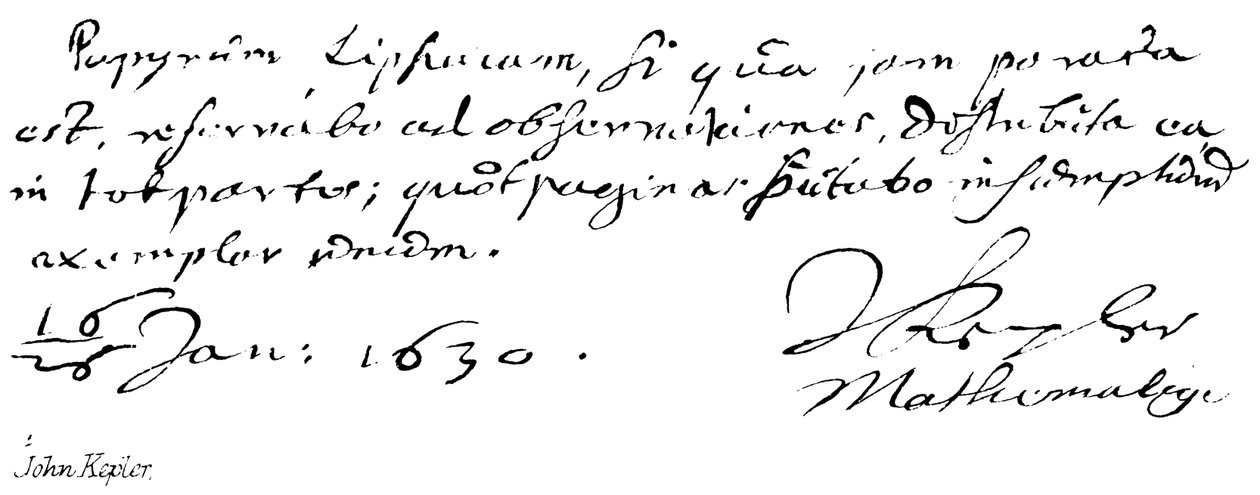 Papyrum Lipsiacam, si qua jam parata
est, reservabo ad observationes, distributa ea
in tot partes; quot paginas putabo insumptum
exemplar unum.
16
26 Jan: 1630.
J Kepler
Mathematicus
John Kepler.